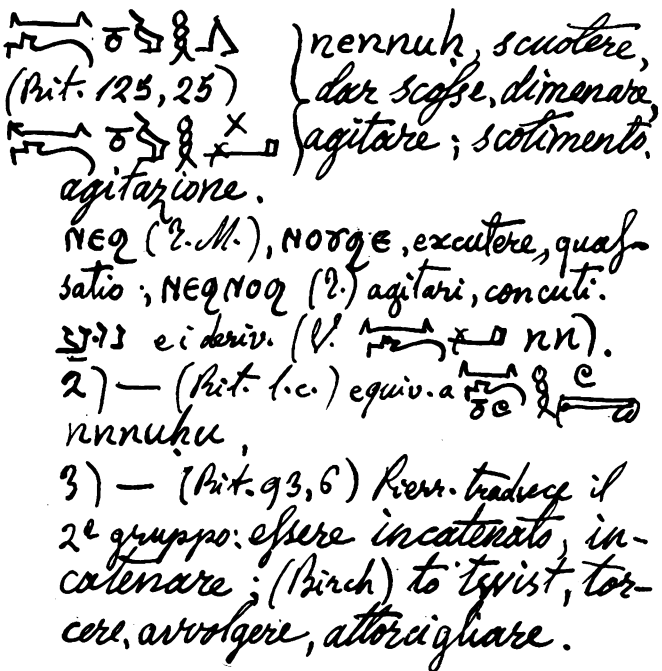 nennuḥ, scuotere,
(Rit. 125, 25) dar scosse, dimenare,
agitare; scotimento,
agitazione.
ⲛⲉϩ (T. M.), ⲛⲟⲩϩⲉ, excutere, quas-
satio; ⲛⲉϩⲛⲟϩ (T.) agitari, concuti.
e i deriv. (V. nn).
2) — (Rit. l.c.) equiv. a
nnnuḥu,
3) — (Rit. 93, 6) Pierr. traduce il
2º gruppo: essere incatenato, in-
catenare; (Birch) to twist, tor-
cere, avvolgere, attorcigliare.